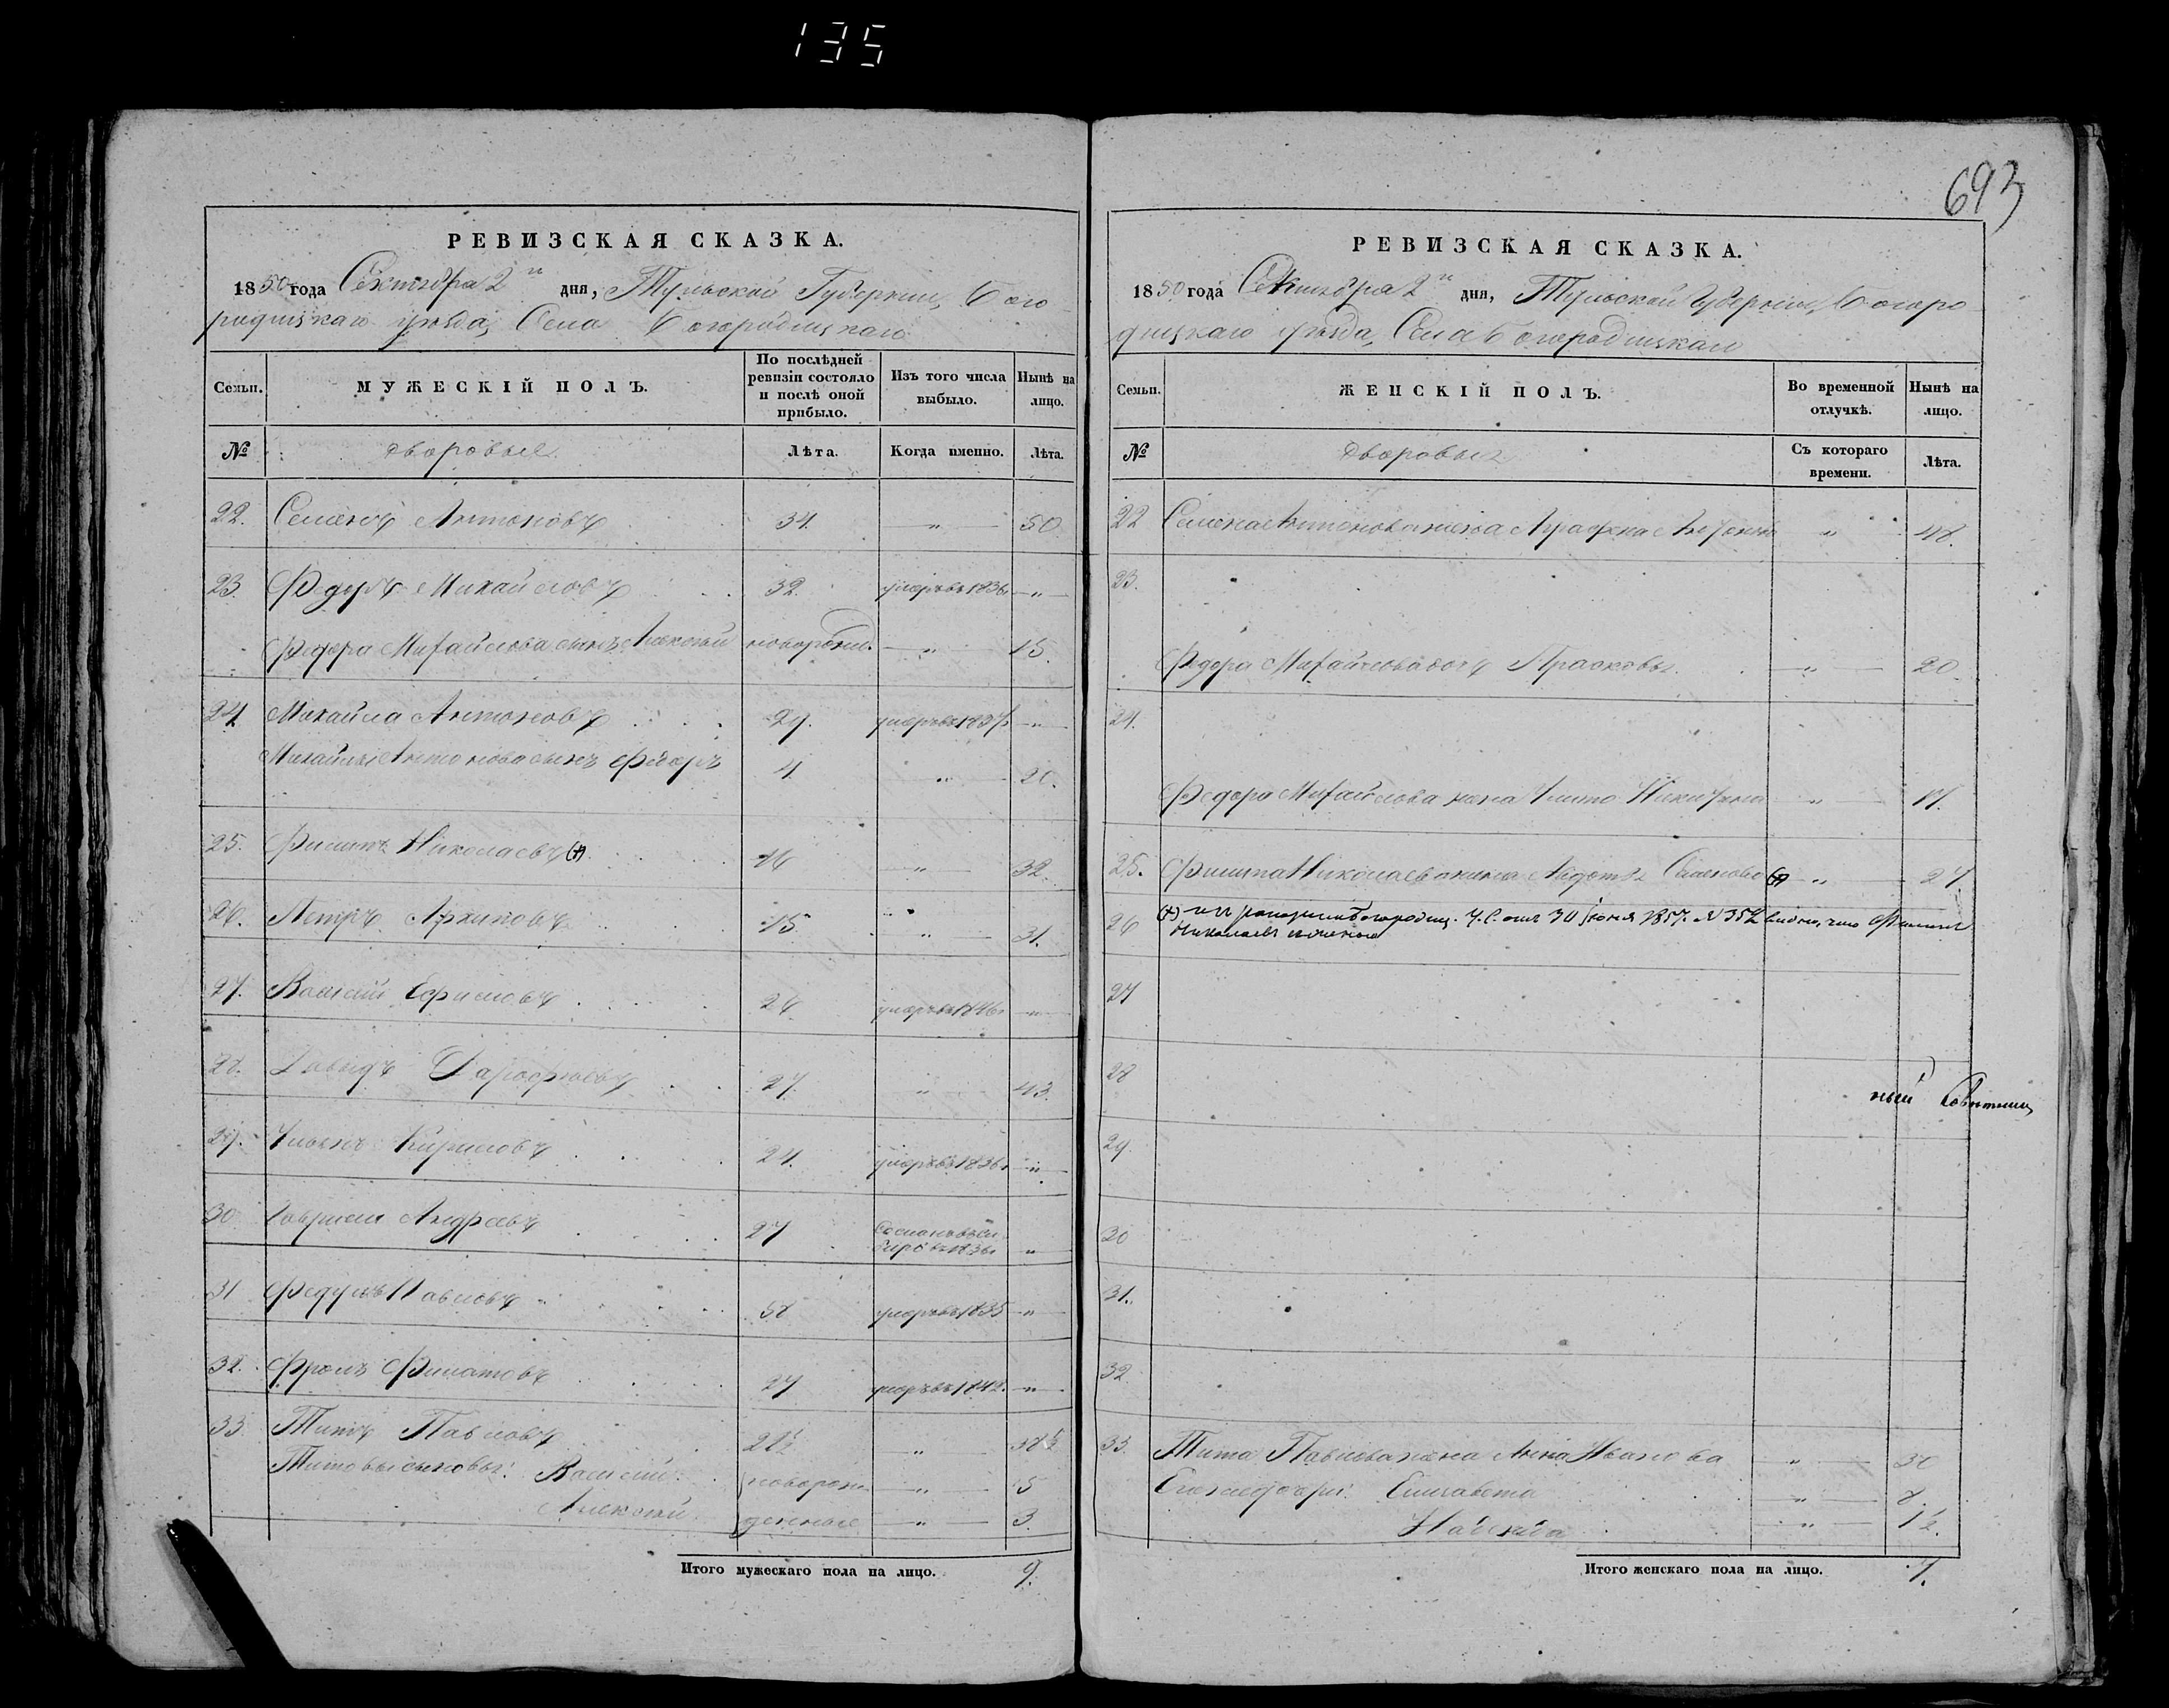 135
693
РЕВИЗСКАЯ СКАЗКА.
1850 года Сентября 2го дня, Тульской Губернии, Бого
родицкаго уезда, Села Богородицкаго
Семьи. МУЖЕСКІЙ ПОЛЪ. По послѣдней ревизіи состояло и послѣ оной прибыло. Изъ того числа выбыло. Нынѣ на лицо.
№ дворовые Лѣта. Когда именно. Лѣта.
22. Семенъ Антоновъ 34. " 50
23. Федоръ Михайловъ 32. умеръ въ 1836 "
Федора Михайлова сынъ Алексей новорожд. " 15.
24. Михайла Антоновъ 29. умеръ въ 1837 "
Михайлы Антонова сынъ Федоръ 4 " 20.
25. Филипъ Николаевъ (+) 16 " 32.
26. Петръ Архиповъ 15 " 31.
27. Василий Ефимовъ 26 умеръ въ 1846 "
28. Давыдъ Дарофеевъ 27. " 43.
29. Ульянъ Кириловъ 24. умеръ въ 1836 "
30 Гаврила Андреевъ 27 Сосланъ въ Си
бирь в 1836 "
31 Федулъ Павловъ 58 умеръ въ 1835 "
32. Фролъ Филатовъ 27 умеръ въ 1842. "
33 Титъ Павловъ 22½ " 38½
Титовы сыновья: Василий новорож " 5
Алексей денные " 3.
Итого мужескаго пола на лицо. 9.
РЕВИЗСКАЯ СКАЗКА.
1850 года Сентября 2го дня, Тульской Губернии, Богоро
дицкаго уезда, Села Богородицкаго
Семьи. ЖЕНСКІЙ ПОЛЪ. Во временной отлучкѣ. Нынѣ на лицо.
№ Дворовые Съ котораго времени. Лѣта.
22 Семена Антонова жена Аграфена " 48.
23.
Федора Михайлова дочь Прасковья " 20.
24.
Федора Михайлова жена Улита Никитина "
25. Филипа Николаева жена Авдотья Семенова (+) " 27
26 (+) Богородиц. У. С. отъ 30 июня 1857. № 352 видно, что Филипъ
Николаевъ с женою
27
28
ный Советникъ
29
30
31.
32
33. Тита Павлова жена Анна Иванова " 30
Его же дочери: Елизавета " 8.
Надежда " 1½.
Итого женскаго пола на лицо. 7.